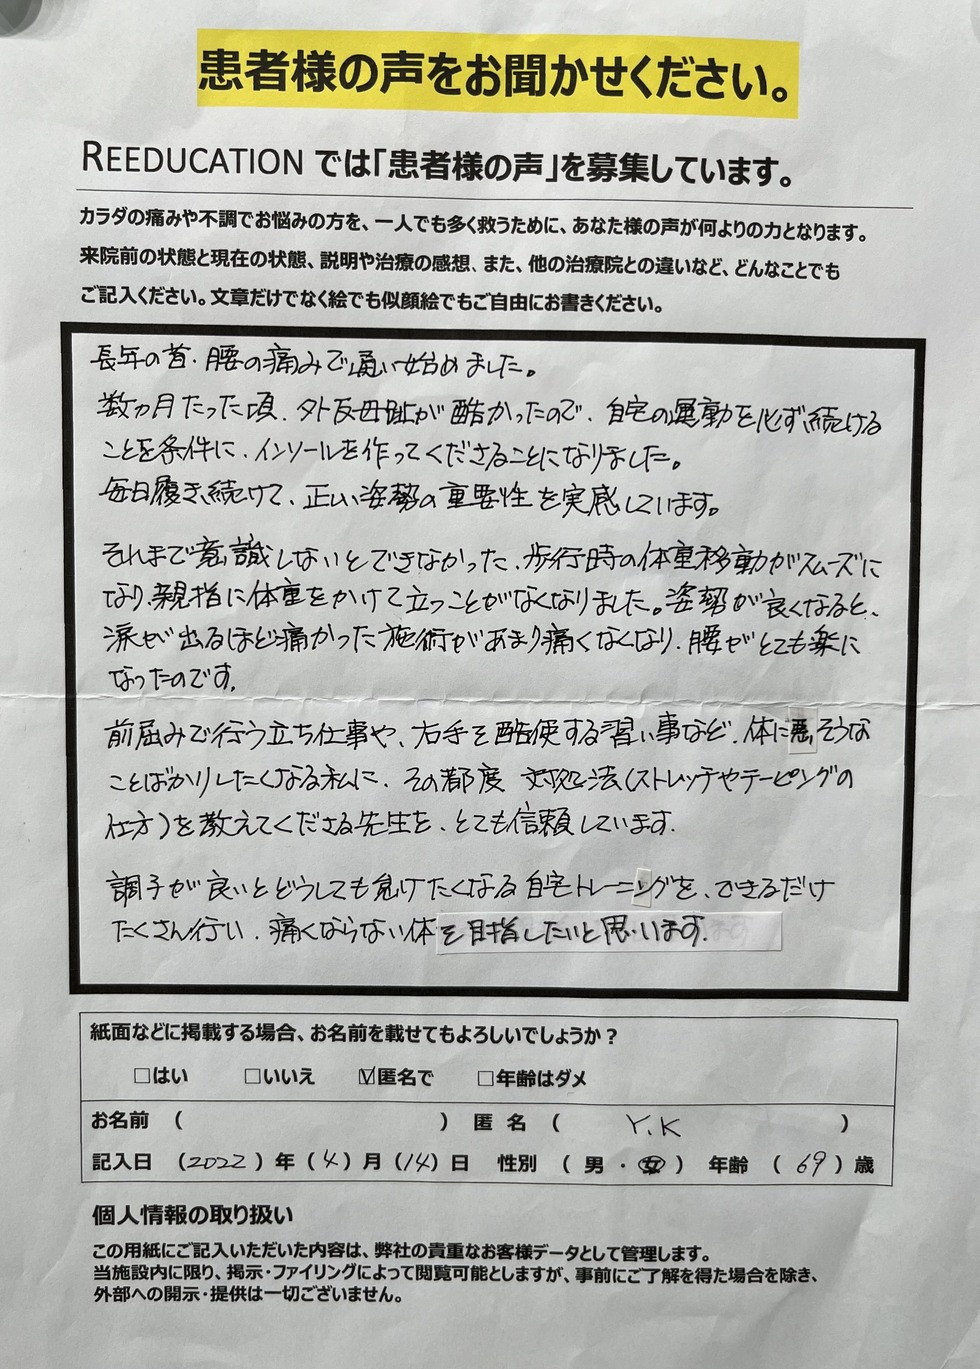 患者様の声をお聞かせください。
REEDUCATION では「患者様の声」を募集しています。
カラダの痛みや不調でお悩みの方を、一人でも多く救うために、あなた様の声が何よりの力となります。
来院前の状態と現在の状態、説明や治療の感想、また、他の治療院との違いなど、どんなことでも
ご記入ください。文章だけでなく絵でも似顔絵でもご自由にお書きください。
長年の首・腰の痛みで通い始めました。
数ヵ月たった頃、外反母趾が酷かったので、自宅の運動を必ず続ける
ことを条件に、インソールを作ってくださることになりました。
毎日履き続けて、正しい姿勢の重要性を実感しています。
それまで意識しないとできなかった、歩行時の体重移動がスムーズに
なり、親指に体重をかけて立つことがなくなりました。姿勢が良くなると、
涙が出るほど痛かった施術があまり痛くなくなり、腰がとても楽に
なったのです。
前屈みで行う立ち仕事や、右手を酷使する習い事など、体に悪そうな
ことばかりしたくなる私に、その都度 対処法(ストレッチやテーピングの
仕方)を教えてくださる先生を、とても信頼しています。
調子が良いとどうしても怠けたくなる自宅トレーニングを、できるだけ
たくさん行い、痛くならない体を目指したいと思います。
紙面などに掲載する場合、お名前を載せてもよろしいでしょうか？
□はい □いいえ ☑匿名で □年齢はダメ
お名前 （ ） 匿 名 （ Y.K ）
記入日 （2022）年（4）月（14）日 性別 （ 男 ・ 女 ） 年齢 （ 69 ）歳
個人情報の取り扱い
この用紙にご記入いただいた内容は、弊社の貴重なお客様データとして管理します。
当施設内に限り、掲示・ファイリングによって閲覧可能としますが、事前にご了解を得た場合を除き、
外部への開示・提供は一切ございません。